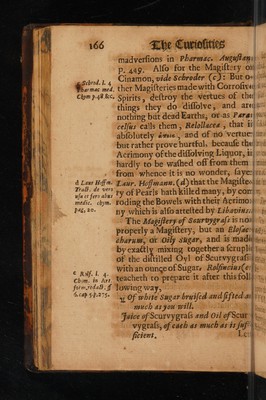 166 The Curiosities
madversions in Pharmac. Augustan.
p. 449. Also for the Magistery of
Cinamon, vide Schroder (c): But o-
ther Magisteries made with Corrosive
Spirits, destroy the vertues of the
things they do dissolve, and are
nothing but dead Earths, or as Para-
celsus calls them, Relollacea, that is
absolutely and of no vertue
but rather prove hurtful. because the
Acrimony of the dissolving Liquor, is
hardly to be washed off from them
from whence it is no wonder, sayes
Laur. Hoffmann. (d) that the Magiste-
ry of Pearls hath killed many, by cor-
roding the Bowels with their Acrimo-
ny which is also attested by Libavius.
The Magistery of Scurvygrass is not
properly a Magistery, but an Elæosac-
charum, or Oily sugar, and is made
by exactly mixing together a scruple
of the distilled Oyl of Scurvygrass
with an ounce of Sugar. Rolfincius (e)
teacheth to prepare it after this fol-
lowing way,
℞ Of white Sugar bruised and sifted as
much as you will.
Juice of Scurvygrass and Oil of Scur-
vygrass, of each as much as is suf-
ficient.
Let
c Schrod. l. 4.
Pharmac. med.
Chym p.48 &c.
d Laur Hoffm.
Tract. de vero
usu & fero abus
medic. chym.
pag, 20.
e Rolf. l. 4.
Chym. in Art
form, redact. §
6. cap 5. p. 275.